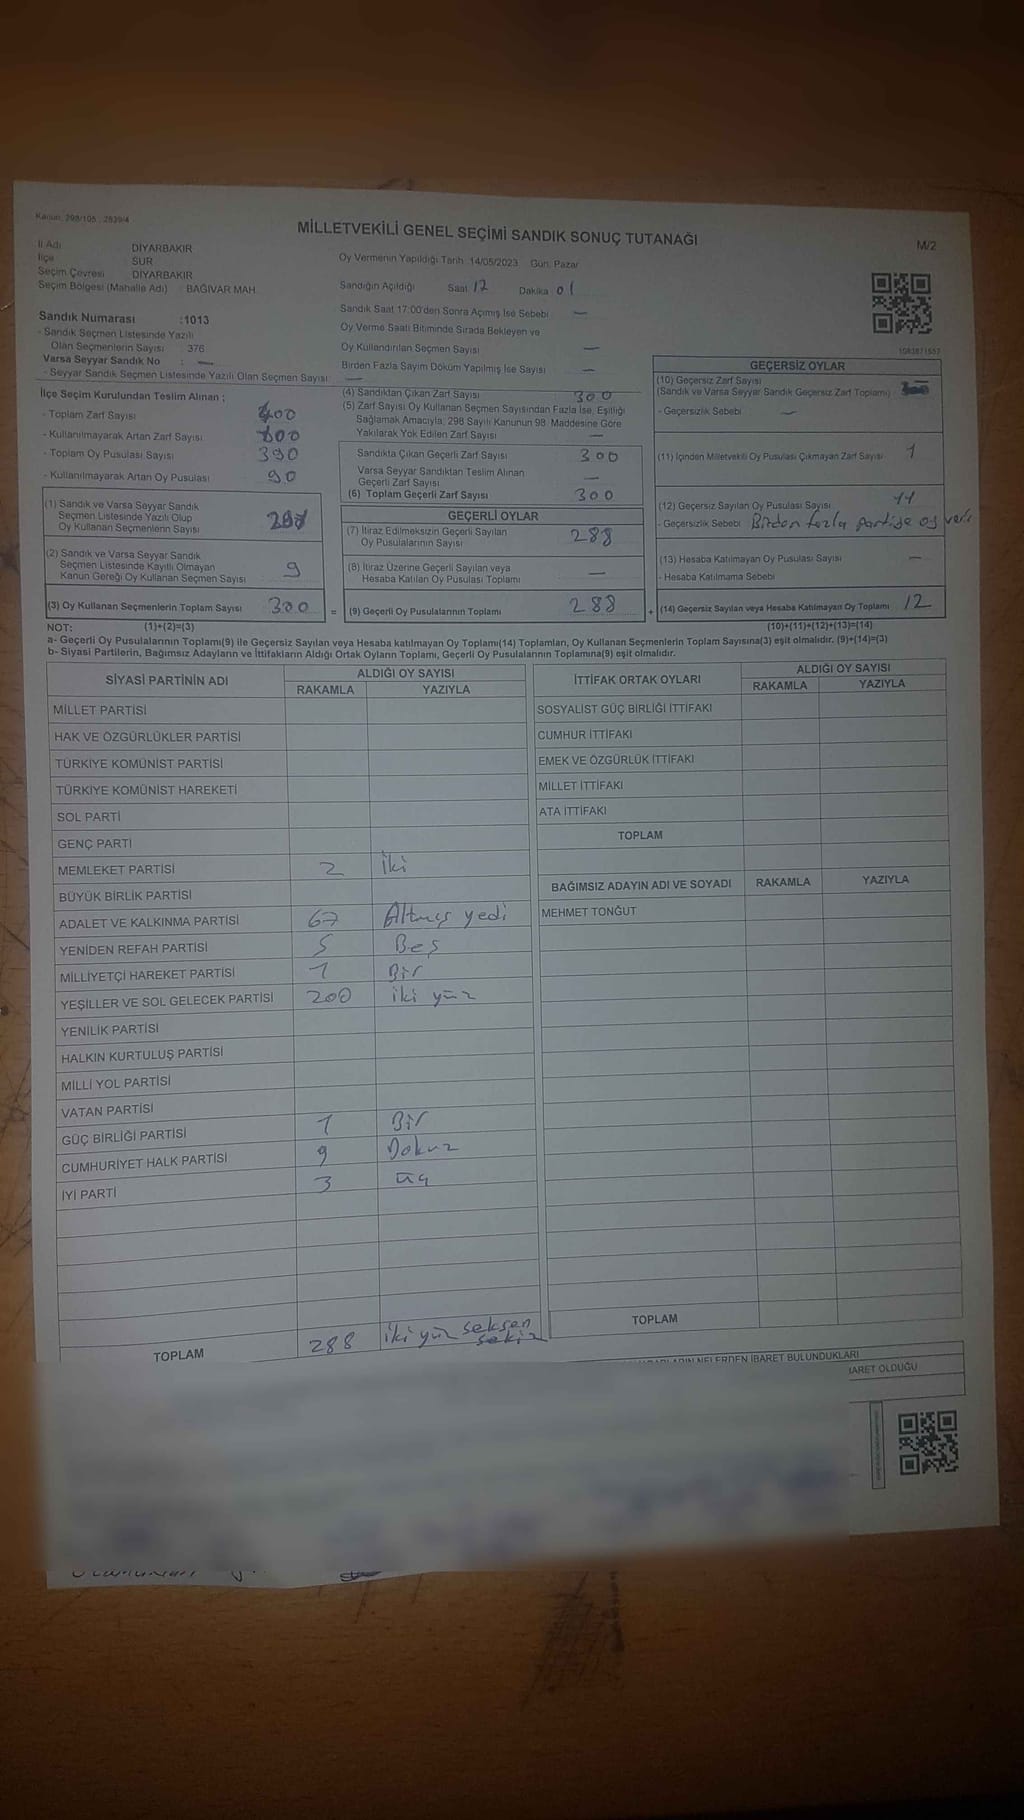 Kanun: 298/105 ; 2839/4
MİLLETVEKİLİ GENEL SEÇİMİ SANDIK SONUÇ TUTANAĞI
M/2
İl Adı DİYARBAKIR
İlçe SUR
Seçim Çevresi DİYARBAKIR
Seçim Bölgesi (Mahalle Adı) : BAĞIVAR MAH.
Oy Vermenin Yapıldığı Tarih :14/05/2023 Gün: Pazar
Sandığın Açıldığı Saat 17 Dakika 01
Sandık Saat 17:00'den Sonra Açımış İse Sebebi —
Oy Verme Saati Bitiminde Sırada Bekleyen ve
Oy Kullandırılan Seçmen Sayısı —
Birden Fazla Sayım Döküm Yapılmış İse Sayısı —
Sandık Numarası :1013
- Sandık Seçmen Listesinde Yazılı
Olan Seçmenlerin Sayısı : 376
Varsa Seyyar Sandık No : —
- Seyyar Sandık Seçmen Listesinde Yazılı Olan Seçmen Sayısı : —
İlçe Seçim Kurulundan Teslim Alınan ;
- Toplam Zarf Sayısı 400
- Kullanılmayarak Artan Zarf Sayısı
- Toplam Oy Pusulası Sayısı 390
- Kullanılmayarak Artan Oy Pusulası 90
(1) Sandık ve Varsa Seyyar Sandık
Seçmen Listesinde Yazılı Olup
Oy Kullanan Seçmenlerin Sayısı
(2) Sandık ve Varsa Seyyar Sandık
Seçmen Listesinde Kayıtlı Olmayan
Kanun Gereği Oy Kullanan Seçmen Sayısı 9
(3) Oy Kullanan Seçmenlerin Toplam Sayısı 300 =
(4) Sandıktan Çıkan Zarf Sayısı 300
(5) Zarf Sayısı Oy Kullanan Seçmen Sayısından Fazla İse, Eşitliği
Sağlamak Amacıyla; 298 Sayılı Kanunun 98. Maddesine Göre
Yakılarak Yok Edilen Zarf Sayısı —
Sandıkta Çıkan Geçerli Zarf Sayısı 300
Varsa Seyyar Sandıktan Teslim Alınan
Geçerli Zarf Sayısı —
(6) Toplam Geçerli Zarf Sayısı 300
GEÇERLİ OYLAR
(7) İtiraz Edilmeksizin Geçerli Sayılan
Oy Pusulalarının Sayısı 288
(8) İtiraz Üzerine Geçerli Sayılan veya
Hesaba Katılan Oy Pusulası Toplamı —
(9) Geçerli Oy Pusulalarının Toplamı 288 +
1083871557
GEÇERSİZ OYLAR
(10) Geçersiz Zarf Sayısı
(Sandık ve Varsa Seyyar Sandık Geçersiz Zarf Toplamı)
- Geçersizlik Sebebi —
(11) İçinden Milletvekili Oy Pusulası Çıkmayan Zarf Sayısı 1
(12) Geçersiz Sayılan Oy Pusulası Sayısı 11
- Geçersizlik Sebebi Birden fazla partiye oy
(13) Hesaba Katılmayan Oy Pusulası Sayısı —
- Hesaba Katılmama Sebebi
(14) Geçersiz Sayılan veya Hesaba Katılmayan Oy Toplamı 12
NOT: (1)+(2)=(3)
(10)+(11)+(12)+(13)=(14)
a- Geçerli Oy Pusulalarının Toplamı(9) ile Geçersiz Sayılan veya Hesaba katılmayan Oy Toplamı(14) Toplamları, Oy Kullanan Seçmenlerin Toplam Sayısına(3) eşit olmalıdır. (9)+(14)=(3)
b- Siyasi Partilerin, Bağımsız Adayların ve İttifakların Aldığı Ortak Oyların Toplamı, Geçerli Oy Pusulalarının Toplamına(9) eşit olmalıdır.
SİYASİ PARTİNİN ADI
ALDIĞI OY SAYISI
RAKAMLA YAZIYLA
MİLLET PARTİSİ
HAK VE ÖZGÜRLÜKLER PARTİSİ
TÜRKİYE KOMÜNİST PARTİSİ
TÜRKİYE KOMÜNİST HAREKETİ
SOL PARTİ
GENÇ PARTİ
MEMLEKET PARTİSİ 2 iki
BÜYÜK BİRLİK PARTİSİ
ADALET VE KALKINMA PARTİSİ 67 Altmış yedi
YENİDEN REFAH PARTİSİ 5 Beş
MİLLİYETÇİ HAREKET PARTİSİ 1 Bir
YEŞİLLER VE SOL GELECEK PARTİSİ 200 iki yüz
YENİLİK PARTİSİ
HALKIN KURTULUŞ PARTİSİ
MİLLİ YOL PARTİSİ
VATAN PARTİSİ
GÜÇ BİRLİĞİ PARTİSİ 1 Bir
CUMHURİYET HALK PARTİSİ 9 Dokuz
İYİ PARTİ 3 üç
TOPLAM 288 iki yüz seksen
sekiz
İTTİFAK ORTAK OYLARI
ALDIĞI OY SAYISI
RAKAMLA YAZIYLA
SOSYALİST GÜÇ BİRLİĞİ İTTİFAKI
CUMHUR İTTİFAKI
EMEK VE ÖZGÜRLÜK İTTİFAKI
MİLLET İTTİFAKI
ATA İTTİFAKI
TOPLAM
BAĞIMSIZ ADAYIN ADI VE SOYADI RAKAMLA YAZIYLA
MEHMET TONĞUT
TOPLAM
NELERDEN İBARET BULUNDUKLARI
İBARET OLDUĞU